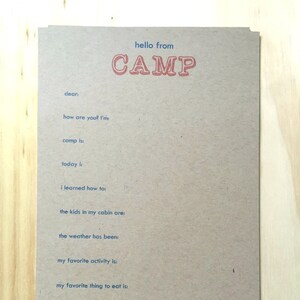 hello from
CAMP
dear:
how are you? I'm:
camp is:
today I:
I learned how to:
the kids in my cabin are:
the weather has been:
my favorite activity is:
my favorite thing to eat is: